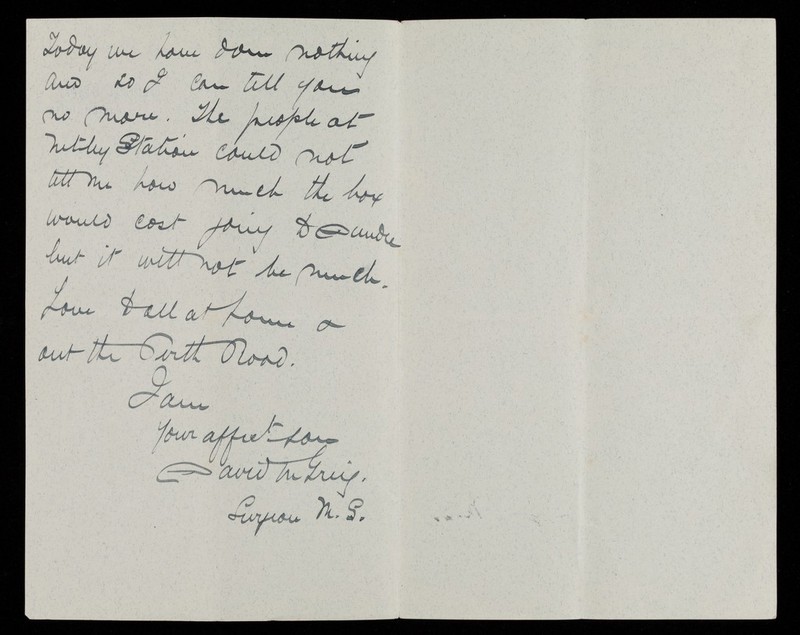 Today we have done nothing
and so I can tell you
no more. The people at
Netley Station could not
tell me how much the box
would cost going to Dundee
but it will not be much.
Love to all at home &
out the Perth Road.
I am
Your affect. son
David M Greig.
Surgeon M. S.